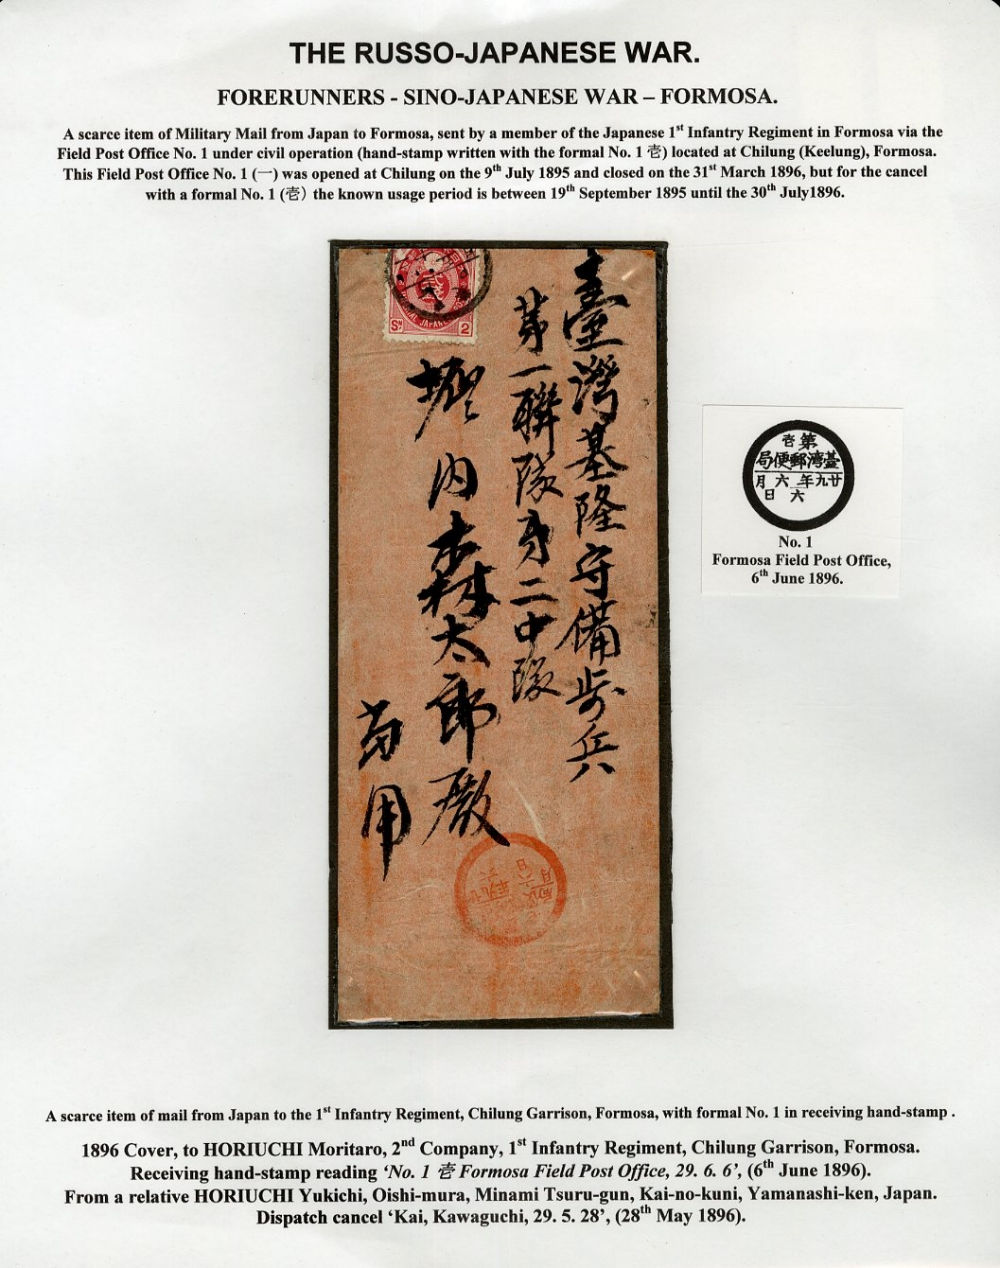 THE RUSSO-JAPANESE WAR.
FORERUNNERS - SINO-JAPANESE WAR – FORMOSA.
A scarce item of Military Mail from Japan to Formosa, sent by a member of the Japanese 1st Infantry Regiment in Formosa via the
Field Post Office No. 1 under civil operation (hand-stamp written with the formal No. 1 壱) located at Chilung (Keelung), Formosa.
This Field Post Office No. 1 (一) was opened at Chilung on the 9th July 1895 and closed on the 31st March 1896, but for the cancel
with a formal No. 1 (壱) the known usage period is between 19th September 1895 until the 30th July1896.
臺灣基隆守備歩兵
第一聯隊第二中隊
堀内森太郎殿
SN 2
第壱
臺湾郵便局
廿九年六月
六日
No. 1
Formosa Field Post Office,
6th June 1896.
A scarce item of mail from Japan to the 1st Infantry Regiment, Chilung Garrison, Formosa, with formal No. 1 in receiving hand-stamp .
1896 Cover, to HORIUCHI Moritaro, 2nd Company, 1st Infantry Regiment, Chilung Garrison, Formosa.
Receiving hand-stamp reading ‘No. 1 壱 Formosa Field Post Office, 29. 6. 6’, (6th June 1896).
From a relative HORIUCHI Yukichi, Oishi-mura, Minami Tsuru-gun, Kai-no-kuni, Yamanashi-ken, Japan.
Dispatch cancel ‘Kai, Kawaguchi, 29. 5. 28’, (28th May 1896).